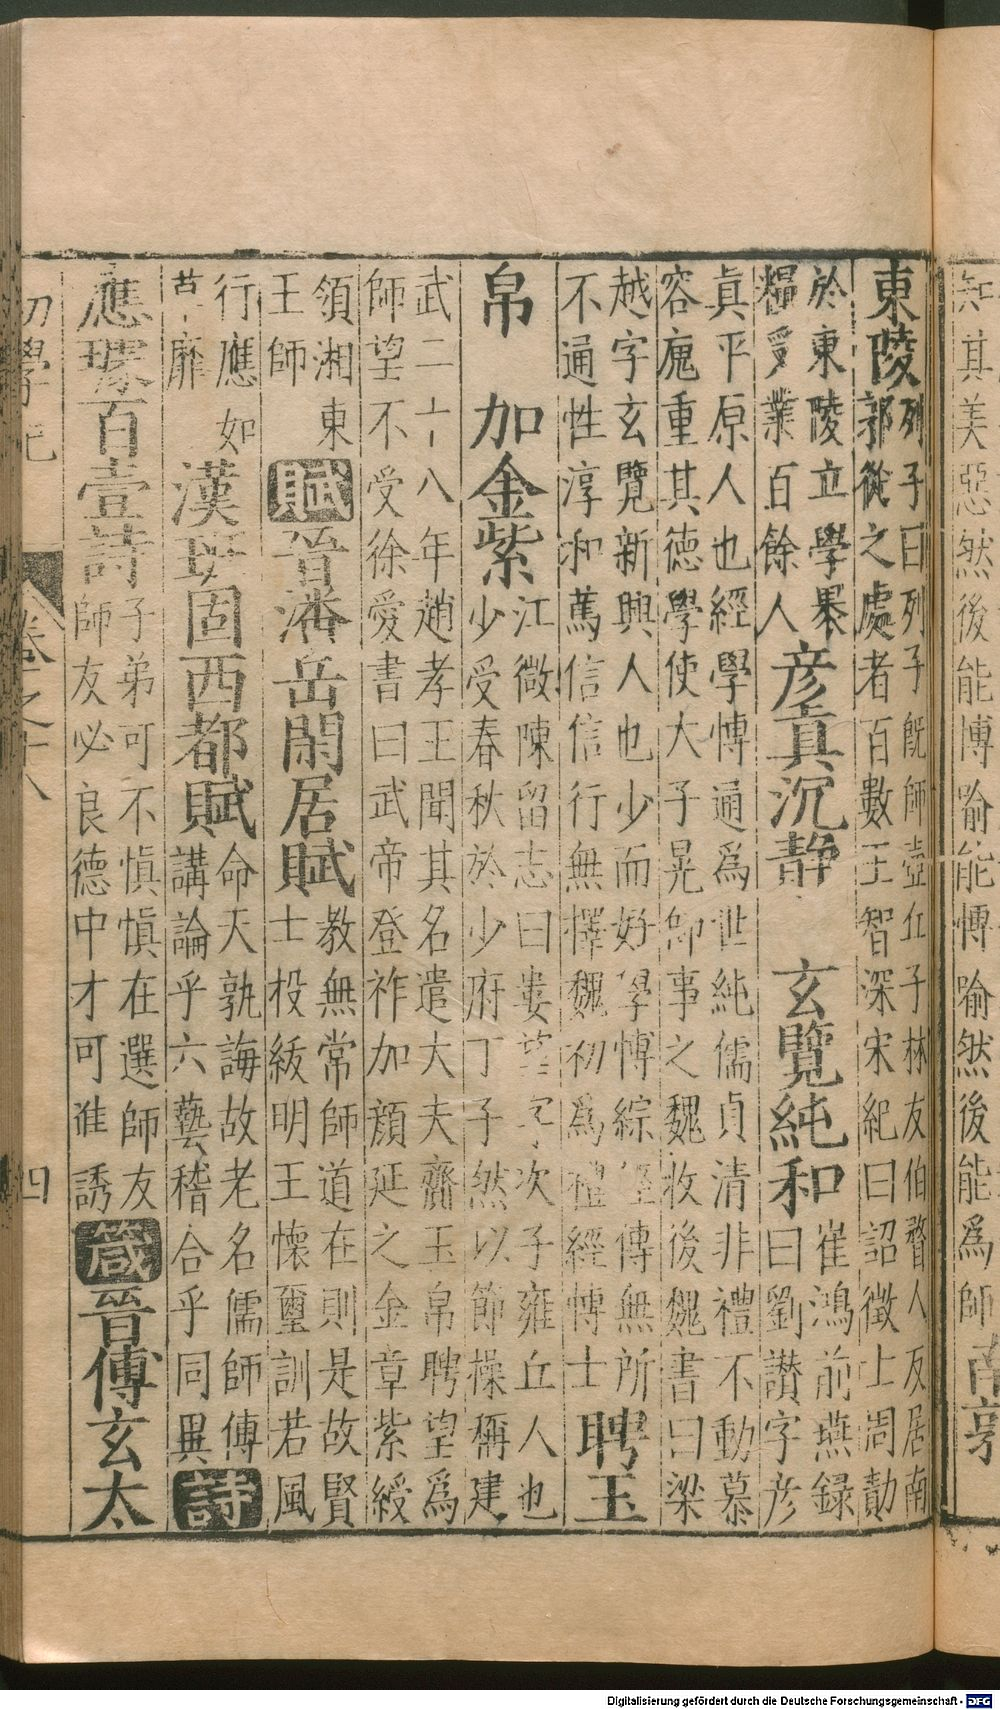 知其美惡然後能博喻能博喻然後能爲師南郭
東陵
列子曰列子既師壺丘子林友伯瞀人反居南
郭從之處者百數王智深宋紀曰詔徵上周勛
於東陵立學果
糧受業百餘人
彦真沉静 玄覽純和
崔鴻前燕録
曰劉讃字彦
真平原人也經學博通爲世純儒貞清非禮不動慕
容廆重其德學使大子晃師事之魏收後魏書曰梁
越字玄覽新興人也少而好學博綜經傳無所
不通性淳和篤信信行無擇魏初爲禮經博士
聘玉
帛 加金紫
江微陳留志曰婁望字次子雍丘人也
少受春秋於少府丁子然以節操稱建
武二十八年趙孝王聞其名遣大夫齋玉帛聘望爲
師望不受徐爰書曰武帝登祚加顔延之金章紫綬
領湘東
王師
賦晉潘岳閑居賦
教無常師道在則是故賢
士投紱明王懷璽訓若風
行應如
草靡
漢班固西都賦
命天孰誨故老名儒師傅
講論乎六藝稽合乎同異
詩
應璩百壹詩
子弟可不慎慎在選師友
師友必良德中才可進誘
箴晉傅玄太
初學記 卷之十八 四
Digitalisierung gefördert durch die Deutsche Forschungsgemeinschaft - DFG